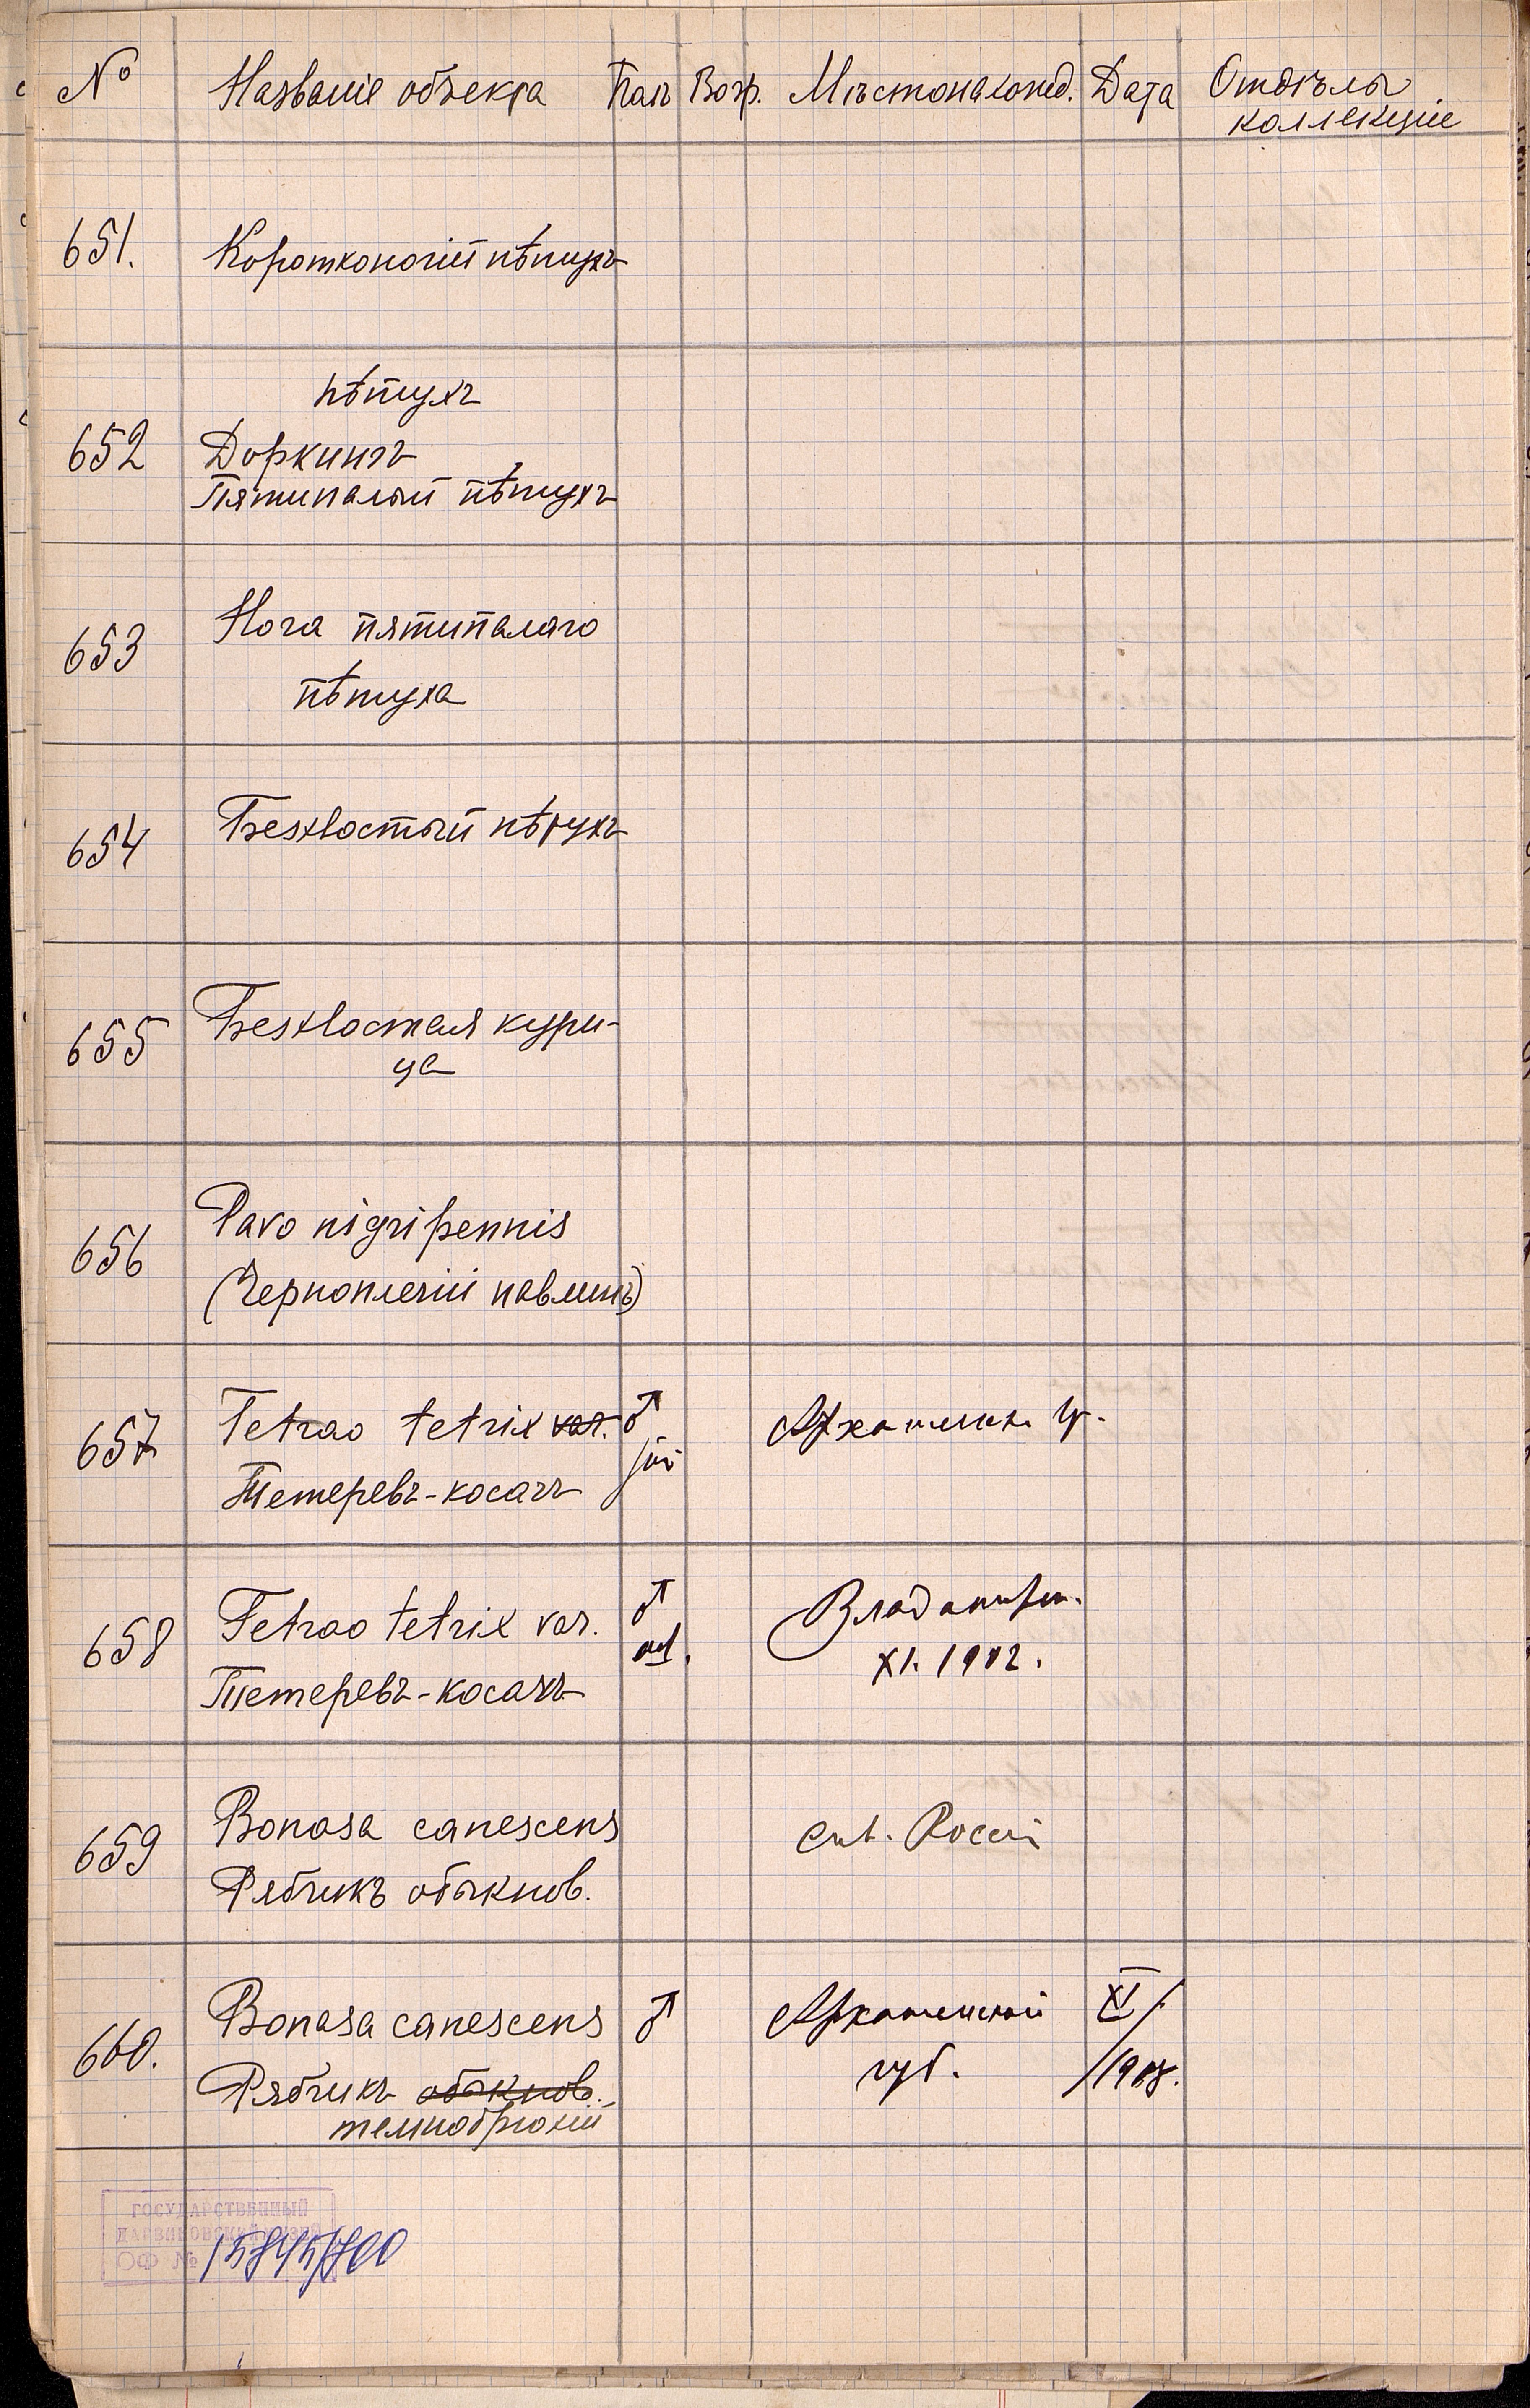 № Названіе объекта Полъ Возр. Мѣстонахожд. Дата Отдѣлы
коллекціи
651. Коротконогій пѣтухъ
пѣтухъ
652 Доркингъ
Пятипалый пѣтухъ
653 Нога пятипалаго
пѣтуха
654 Безхвостый пѣтухъ
655 Безхвостая кури-
ца
656 Pavo nigripennis
(Черноплечій павлинъ)
657 Tetrao tetrix var. ♂ Архангельск. г.
juv
Тетеревъ-косачъ
658 Tetrao tetrix var. ♂
ad.
XI. 1902.
Тетеревъ-косачъ
659 Bonasa canescens Россіи
Рябчикъ обыкнов.
660. Bonasa canescens ♂ Архангельской XI/
Рябчикъ обыкнов. губ. /1908.
темнобрюхій
ГОСУДАРСТВЕННЫЙ
ДАРВИНОВСКИЙ МУЗЕЙ
ОФ №